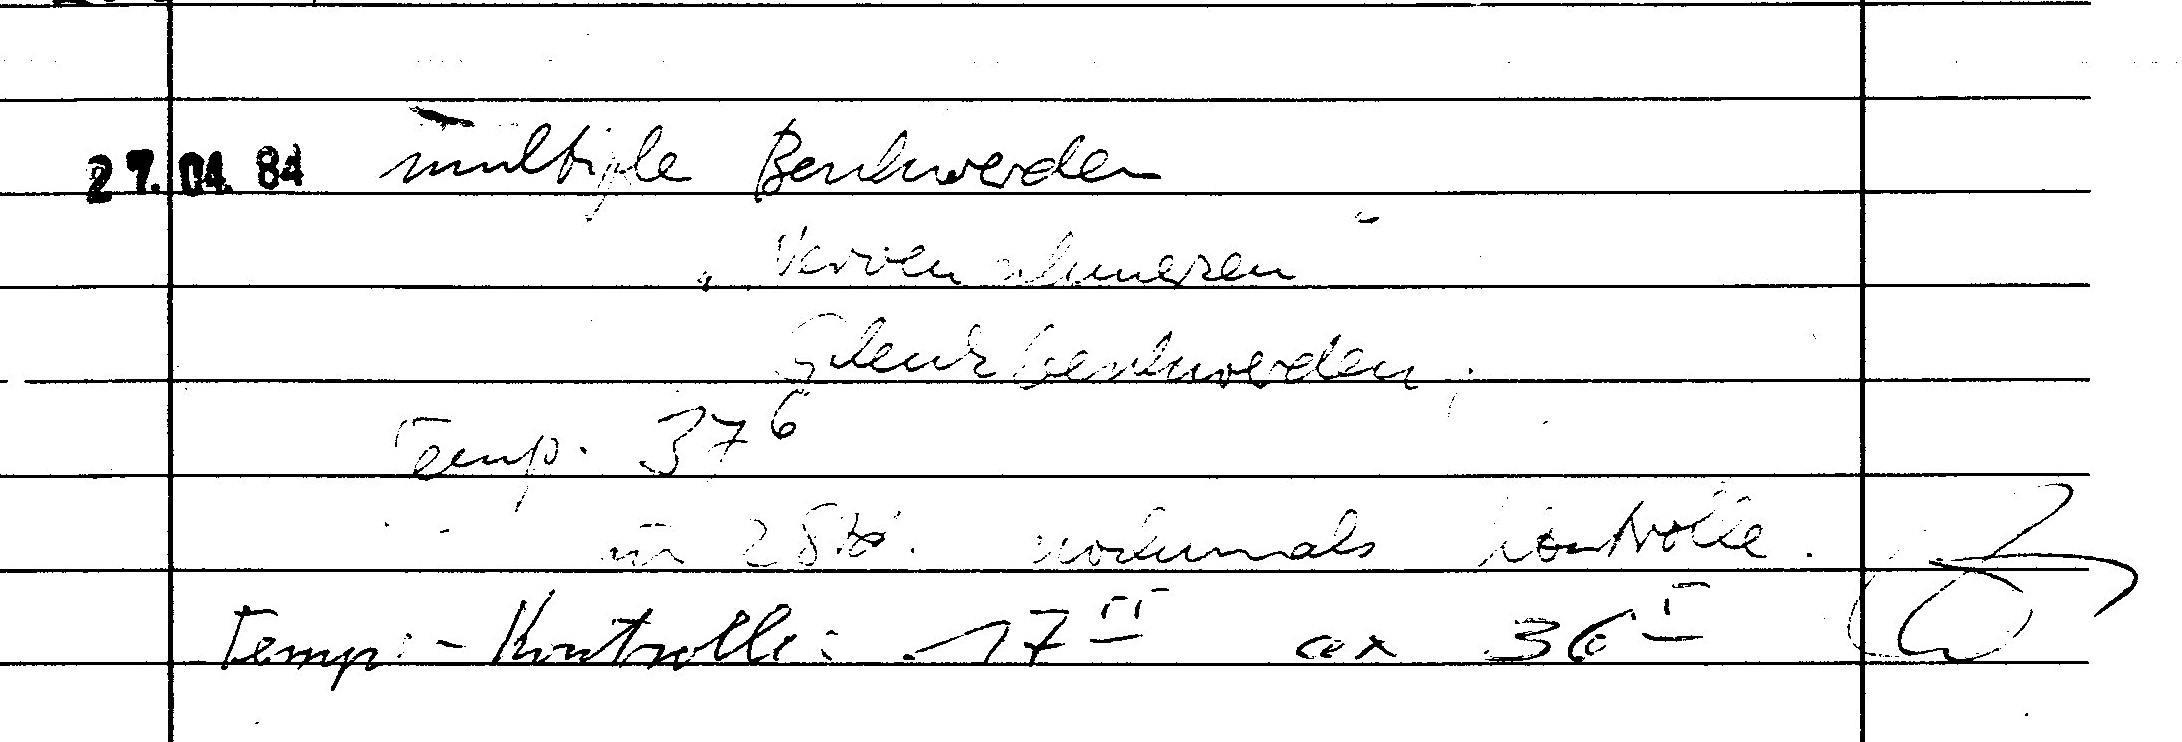 27.04.84 multiple Beschwerden
„Nervenschmerzen"
Gelenkbeschwerden,
Temp. 37⁶
in 2 Std. nochmals Kontrolle.
Temp.-Kontrolle: 17 ax 36